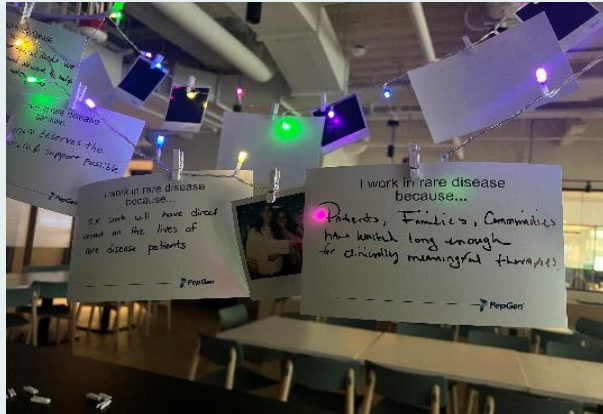 I work in rare disease
because...
deserves the
support possible
PepGen
I work in rare disease
because...
work will have direct
impact on the lives of
rare disease patients
PepGen
I work in rare disease
because...
Patients, Families, Communities
have waited long enough
for clinically meaningful therapies.
PepGen